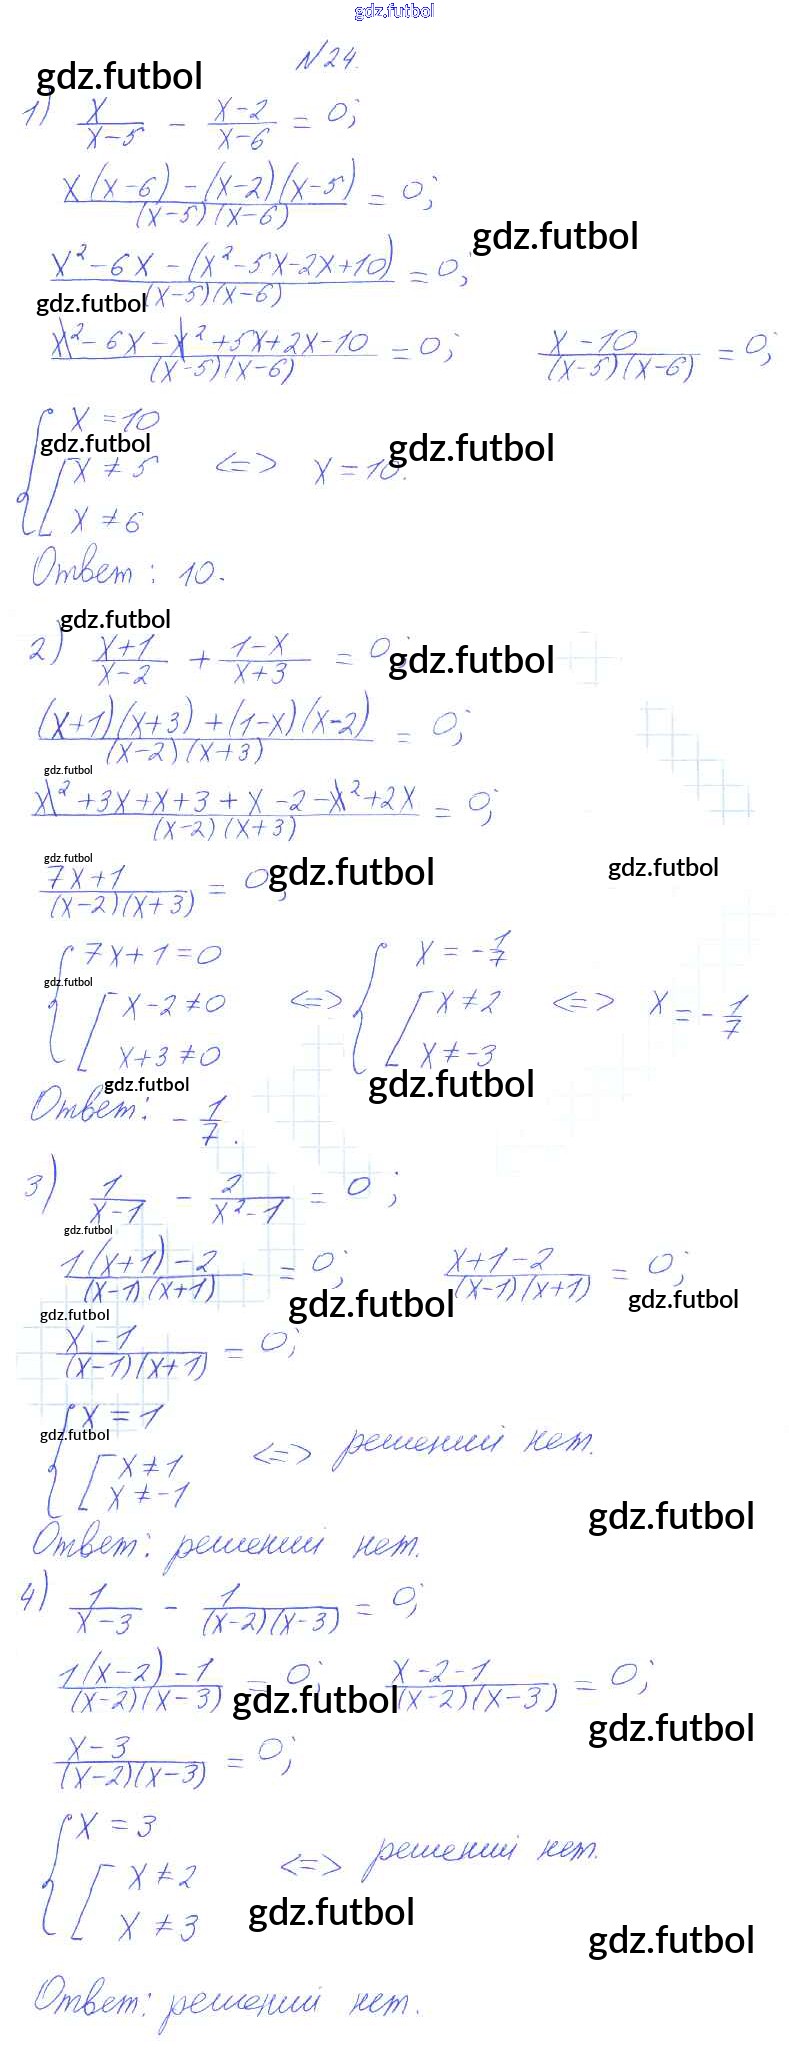 gdz.futbol
N24.
gdz.futbol
1) x/(x-5) - (x-2)/(x-6) = 0;
(x(x-6) - (x-2)(x-5))/((x-5)(x-6)) = 0;
gdz.futbol
(x² - 6x - (x² - 5x - 2x + 10))/((x-5)(x-6)) = 0;
gdz.futbol
(x² - 6x - x² + 5x + 2x - 10)/((x-5)(x-6)) = 0; (x - 10)/((x-5)(x-6)) = 0;
{ x = 10
gdz.futbol gdz.futbol
[ x ≠ 5 <=> x = 10.
x ≠ 6
Ответ: 10.
gdz.futbol
2) (x+1)/(x-2) + (1-x)/(x+3) = 0;
gdz.futbol
((x+1)(x+3) + (1-x)(x-2))/((x-2)(x+3)) = 0;
gdz.futbol
(x² + 3x + x + 3 + x - 2 - x² + 2x)/((x-2)(x+3)) = 0;
gdz.futbol gdz.futbol gdz.futbol
(7x+1)/((x-2)(x+3)) = 0;
{ 7x + 1 = 0 { x = -1/7
gdz.futbol
[ x - 2 ≠ 0 <=> [ x ≠ 2 <=> x = -1/7
x + 3 ≠ 0 x ≠ -3
gdz.futbol gdz.futbol
Ответ: -1/7.
3) 1/(x-1) - 2/(x²-1) = 0;
gdz.futbol
(1(x+1) - 2)/((x-1)(x+1)) = 0; (x+1-2)/((x-1)(x+1)) = 0;
gdz.futbol gdz.futbol gdz.futbol
(x-1)/((x-1)(x+1)) = 0;
{ x = 1
gdz.futbol
[ x ≠ 1 <=> решений нет.
x ≠ -1
gdz.futbol
Ответ: решений нет.
4) 1/(x-3) - 1/((x-2)(x-3)) = 0;
(1(x-2) - 1)/((x-2)(x-3)) = 0; (x-2-1)/((x-2)(x-3)) = 0;
gdz.futbol gdz.futbol
(x-3)/((x-2)(x-3)) = 0;
{ x = 3
[ x ≠ 2 <=> решений нет.
x ≠ 3
gdz.futbol gdz.futbol
Ответ: решений нет.